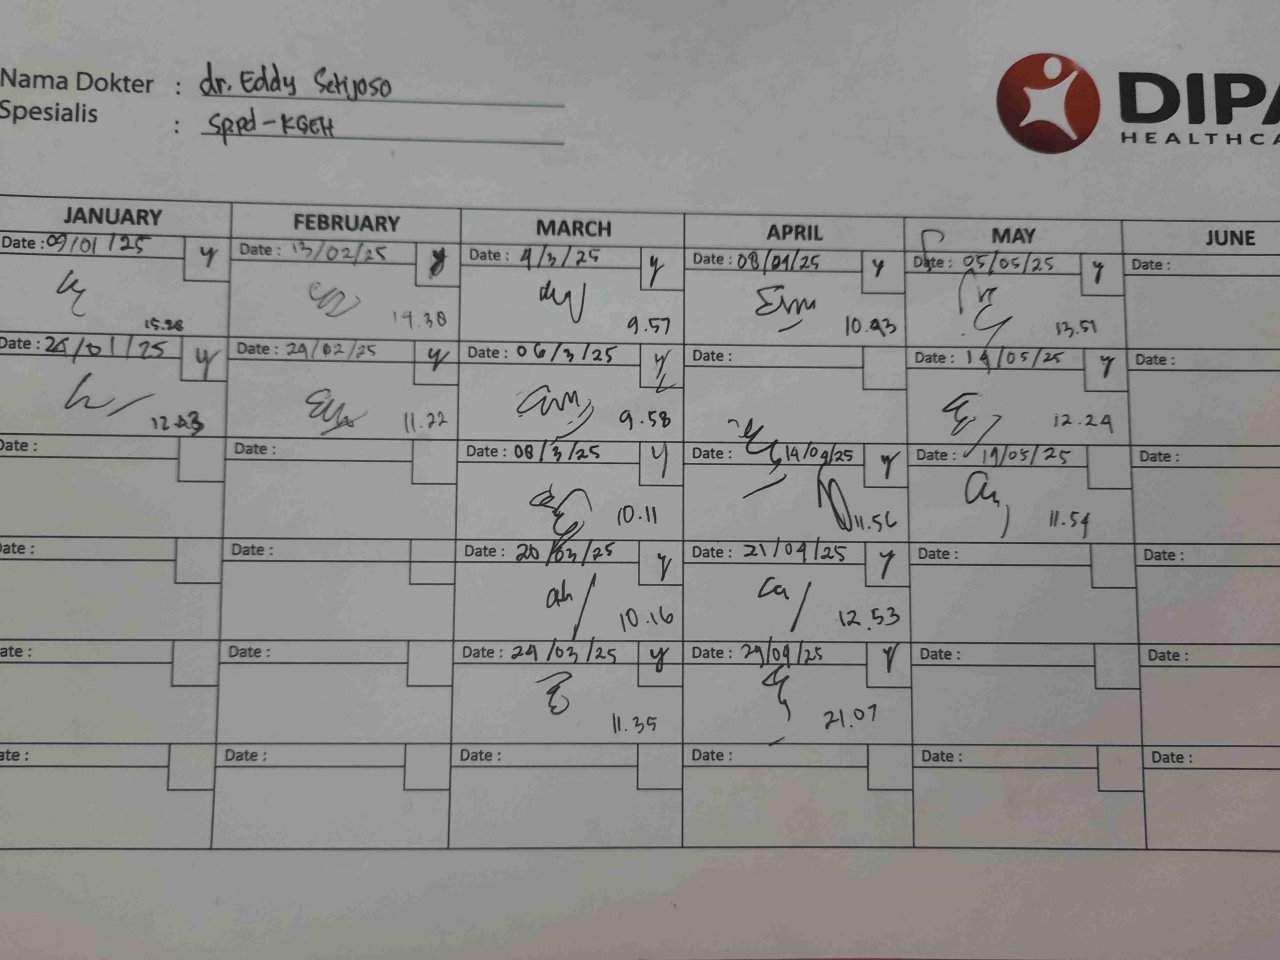 Nama Dokter : dr. Eddy Setijoso
Spesialis : Sppd-KGEH
DIPA
HEALTHCA
JANUARY FEBRUARY MARCH APRIL MAY JUNE
Date : 09/01/25 y Date : 13/02/25 y Date : 4/3/25 y Date : 08/04/25 y Date : 05/05/25 y Date :
15.26 19.38 9.57 10.43 13.51
Date : 25/01/25 y Date : 24/02/25 y Date : 06/3/25 y Date : Date : 14/05/25 y Date :
12.23 11.22 9.58 12.24
Date : Date : Date : 08/3/25 y Date : 14/04/25 y Date : 19/05/25 Date :
10.11 11.56 11.54
ate : Date : Date : 20/03/25 y Date : 21/04/25 y Date : Date :
10.16 12.53
ate : Date : Date : 24/03/25 y Date : 29/04/25 y Date : Date :
11.35 21.07
ate : Date : Date : Date : Date : Date :